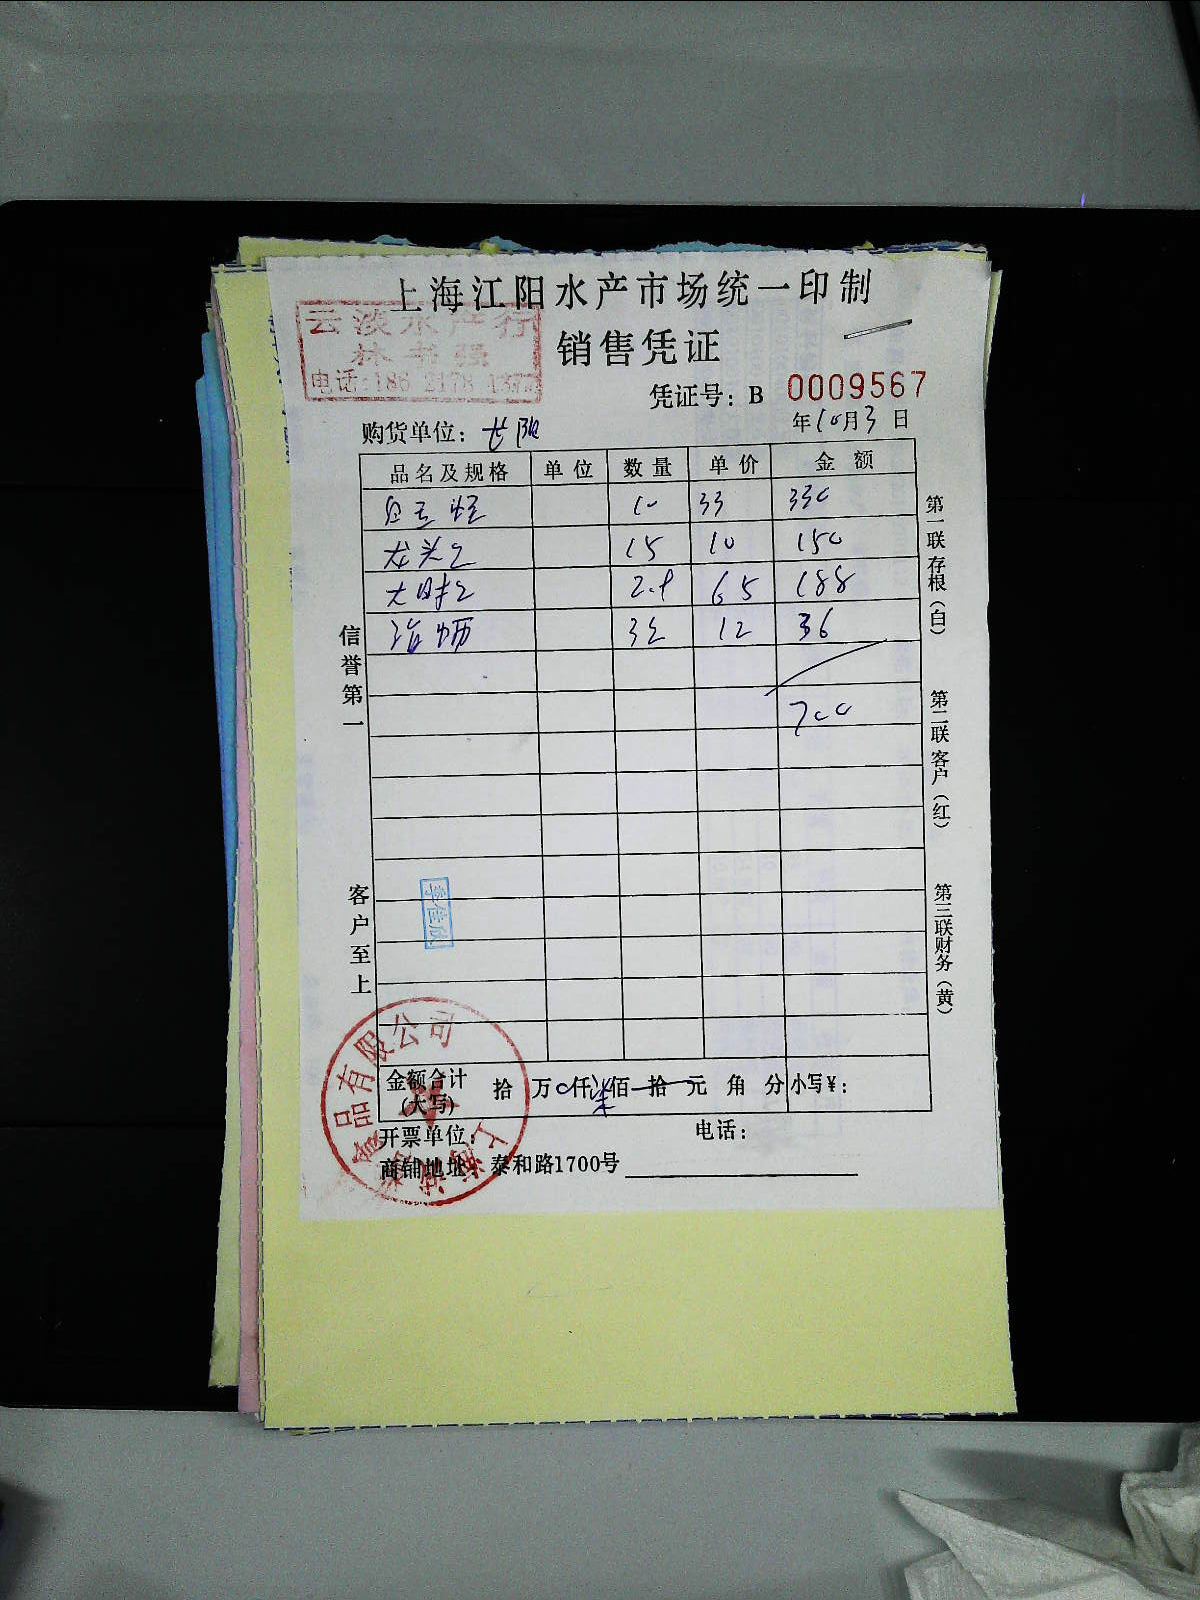 上海江阳水产市场统一印制
云淡水产行
林书强
销售凭证
凭证号：B 0009567
购货单位：长阳
年10月3日
品名及规格 单位 数量 单价 金额
10 33 330
龙头 15 10 150
2.9 65 188
12 36
700
信誉第一
客户至上
第一联存根（白）
第二联客户（红）
第三联财务（黄）
李佳欣
金额合计（大写） 拾 万 0 仟 柒 佰 拾 元 角 分 小写¥：
开票单位： 电话：
商铺地址：泰和路1700号
品有限公司
上海